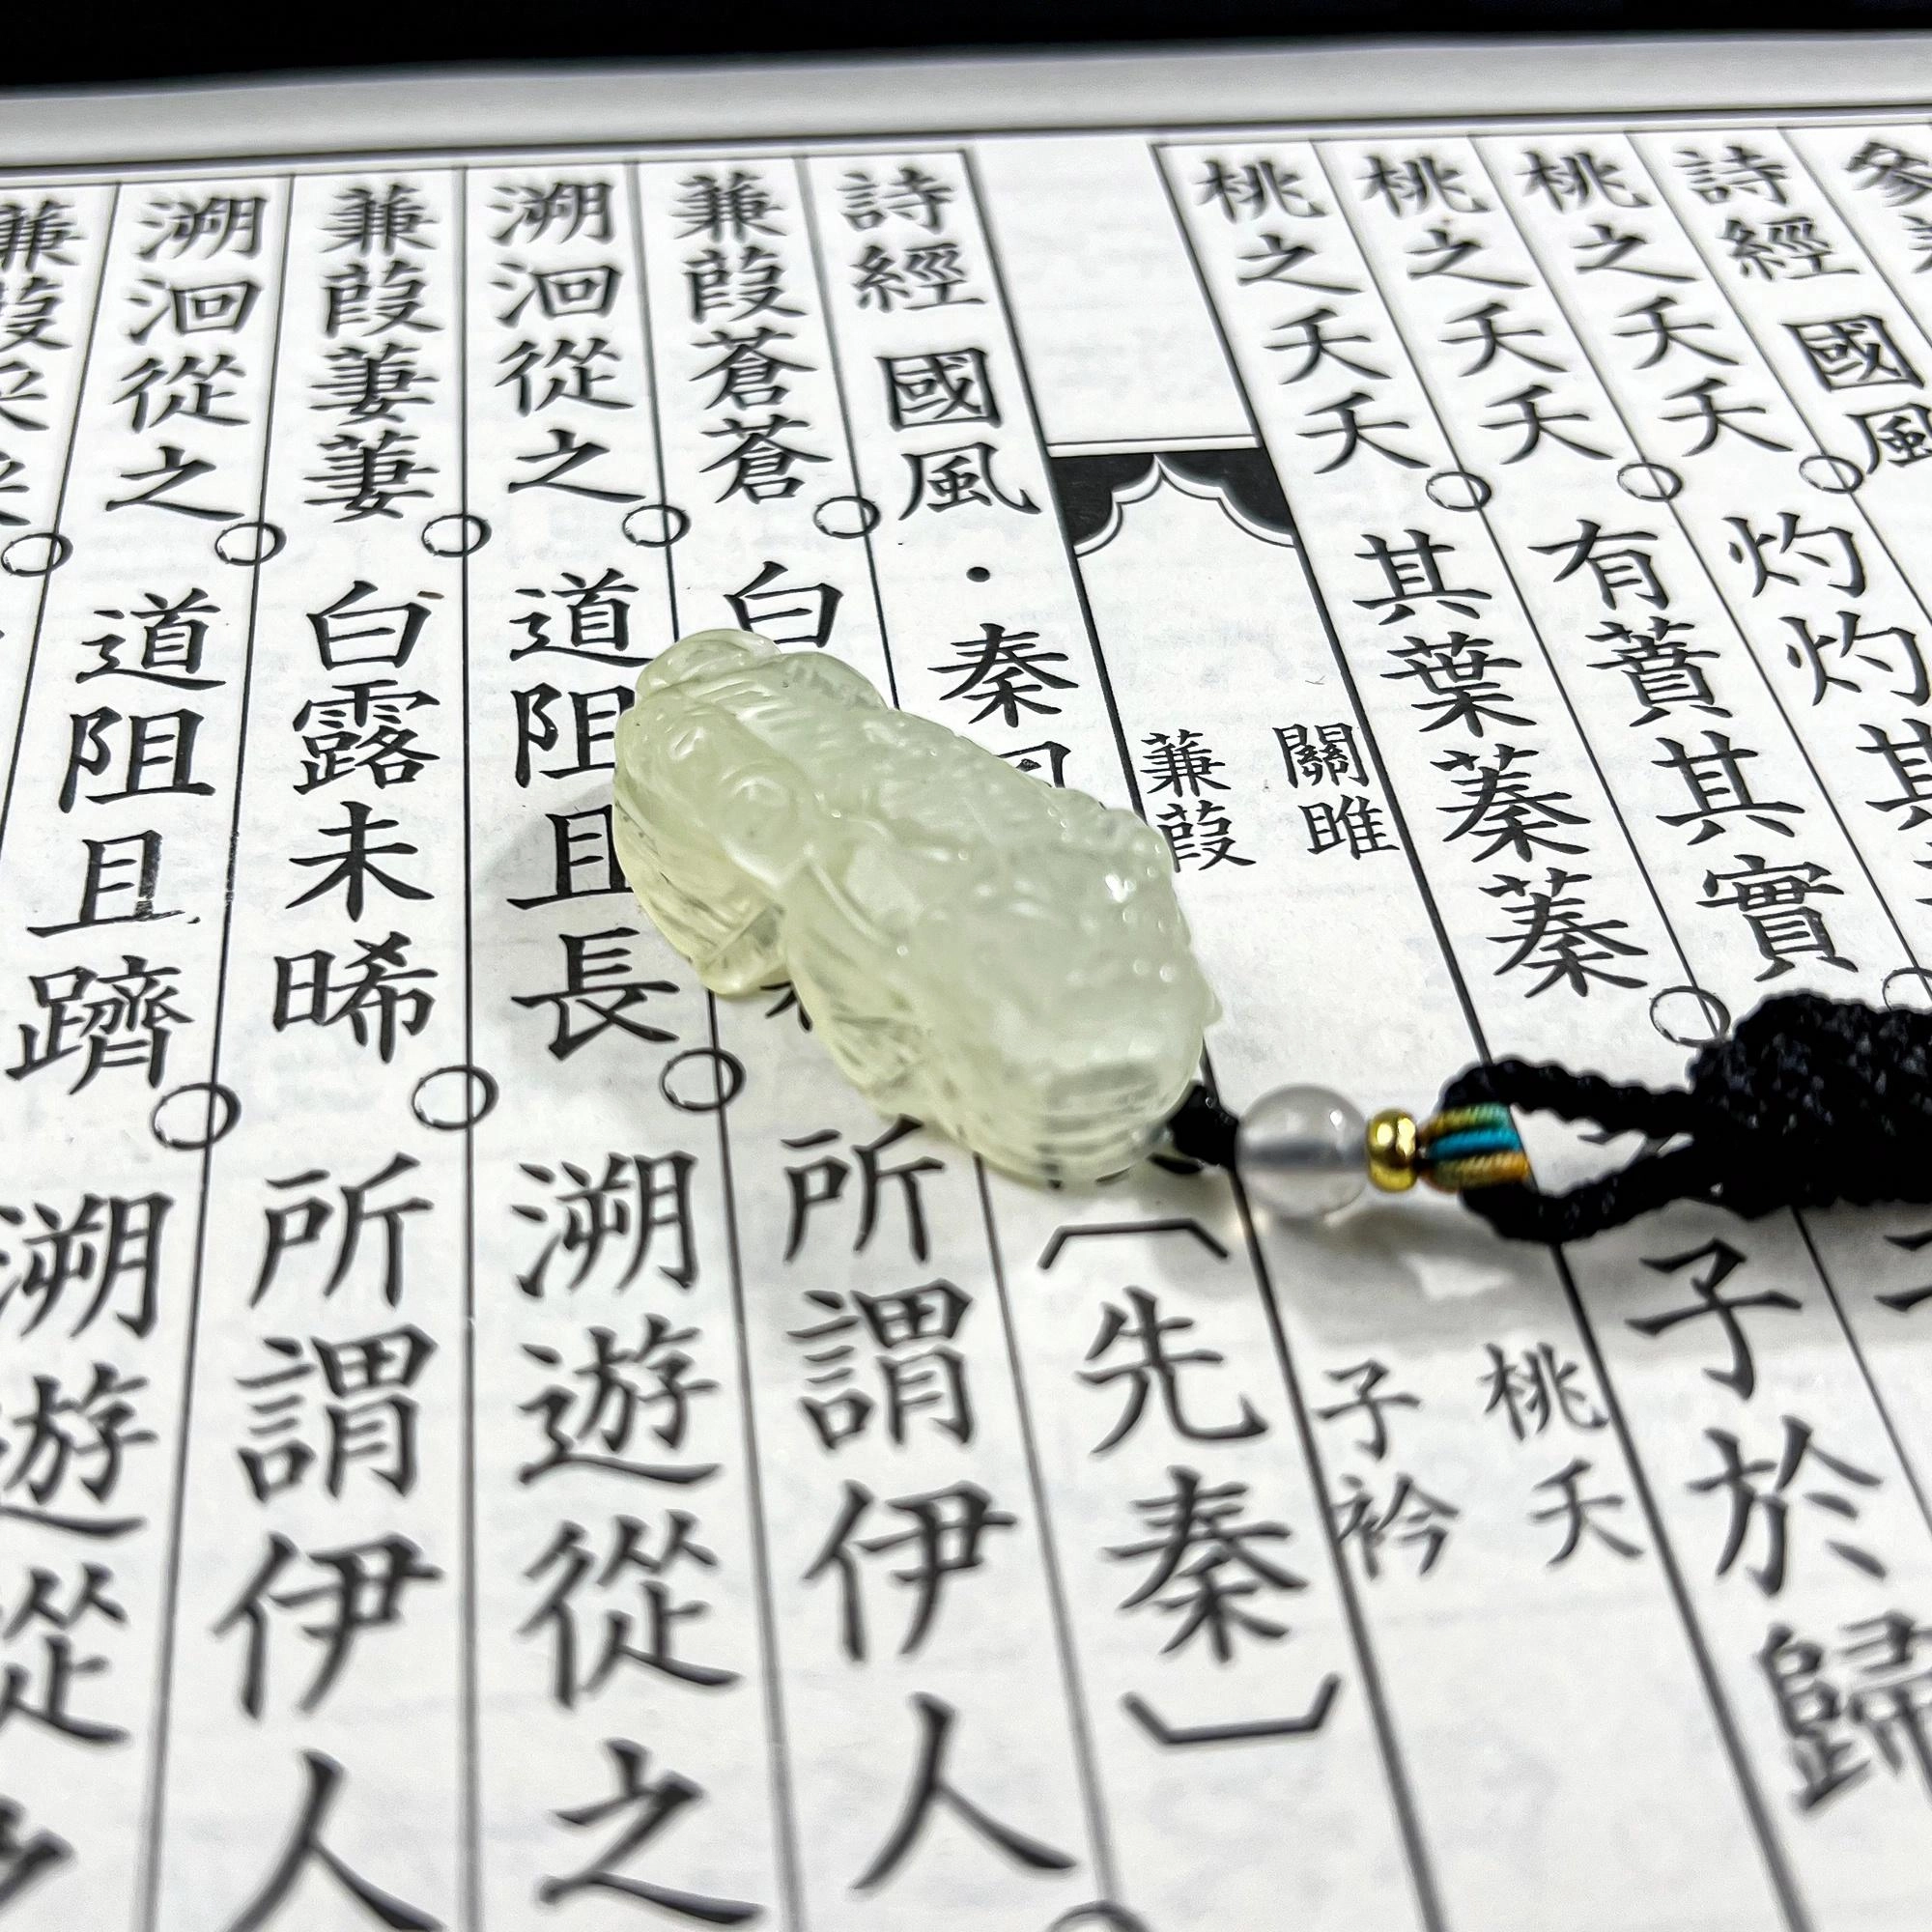 詩經 國風
桃之夭夭○灼灼其
桃之夭夭○有蕡其實○
桃之夭夭○其葉蓁蓁○ 子於歸
關雎 桃夭
蒹葭 子衿
詩經 國風·秦風〔先秦〕
蒹葭蒼蒼○白 所謂伊人○
溯洄從之○道阻且長○溯遊從之
蒹葭萋萋○白露未晞○所謂伊人
溯洄從之○道阻且躋○溯遊從
蒹葭采采○